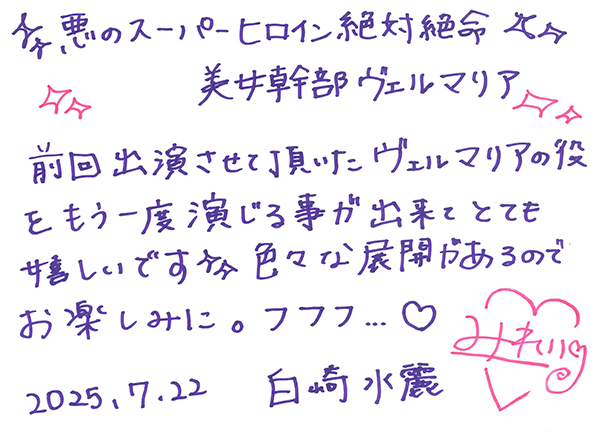 悪のスーパーヒロイン絶対絶命
美女幹部ヴェルマリア
前回出演させて頂いたヴェルマリアの役
をもう一度演じる事が出来てとても
嬉しいです 色々な展開があるので
お楽しみに。フフフ...♡
2025.7.22 白崎水麗
みれい